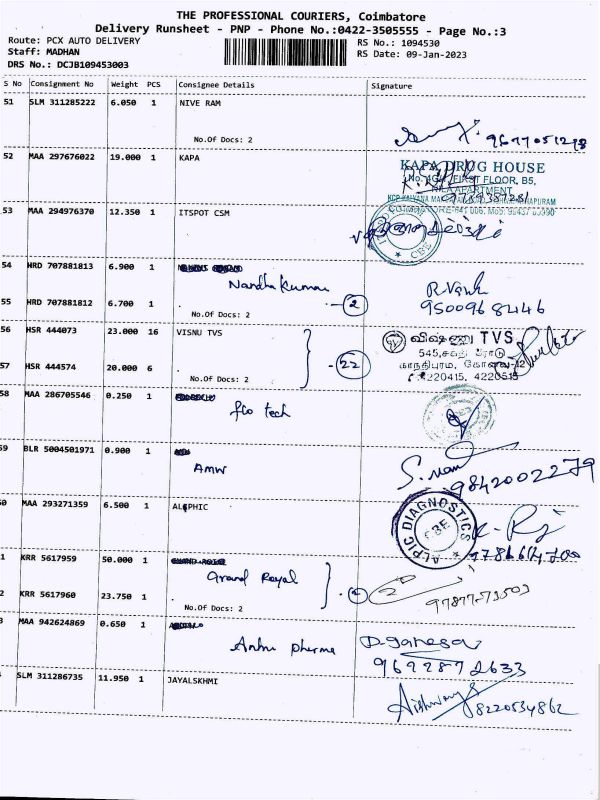 THE PROFESSIONAL COURIERS, Coimbatore
Delivery Runsheet - PNP - Phone No.:0422-3505555 - Page No.:3
Route: PCX AUTO DELIVERY
RS No.: 1094530
Staff: MADHAN
RS Date: 09-Jan-2023
DRS No.: DCJB109453003
S No Consignment No Weight PCS Consignee Details Signature
51 SLM 311285222 6.050 1 NIVE RAM
No.Of Docs: 2
52 MAA 297676022 19.000 1 KAPA
KAPA DRUG HOUSE
FIRST FLOOR, B5,
APARTMENT
53 MAA 294976370 12.350 1 ITSPOT CSM
CBE
54 HRD 707881813 6.900 1
Nandha Kumar
R.
55 HRD 707881812 6.700 1
2
9500968446
No.Of Docs: 2
56 HSR 444073 23.000 16 VISNU TVS
விஷ்ணு TVS
545,சக்தி ரோடு
22
57 HSR 444574 20.000 6
காந்திபுரம், கோவை-12
4220415, 4220515
No.Of Docs: 2
58 MAA 286705546 0.250 1
flo tech
59 BLR 5004501971 0.900 1
AMW
9842002279
60 MAA 293271359 6.500 1 ALPHIC
ALPIC DIAGNOSTICS
CBE
1 KRR 5617959 50.000 1
Grand Royal
2 KRR 5617960 23.750 1
No.Of Docs: 2
97877-73503
3 MAA 942624869 0.650 1
Anbu pharma
D.ganesan
9692872633
SLM 311286735 11.950 1 JAYALSKHMI
8220534862